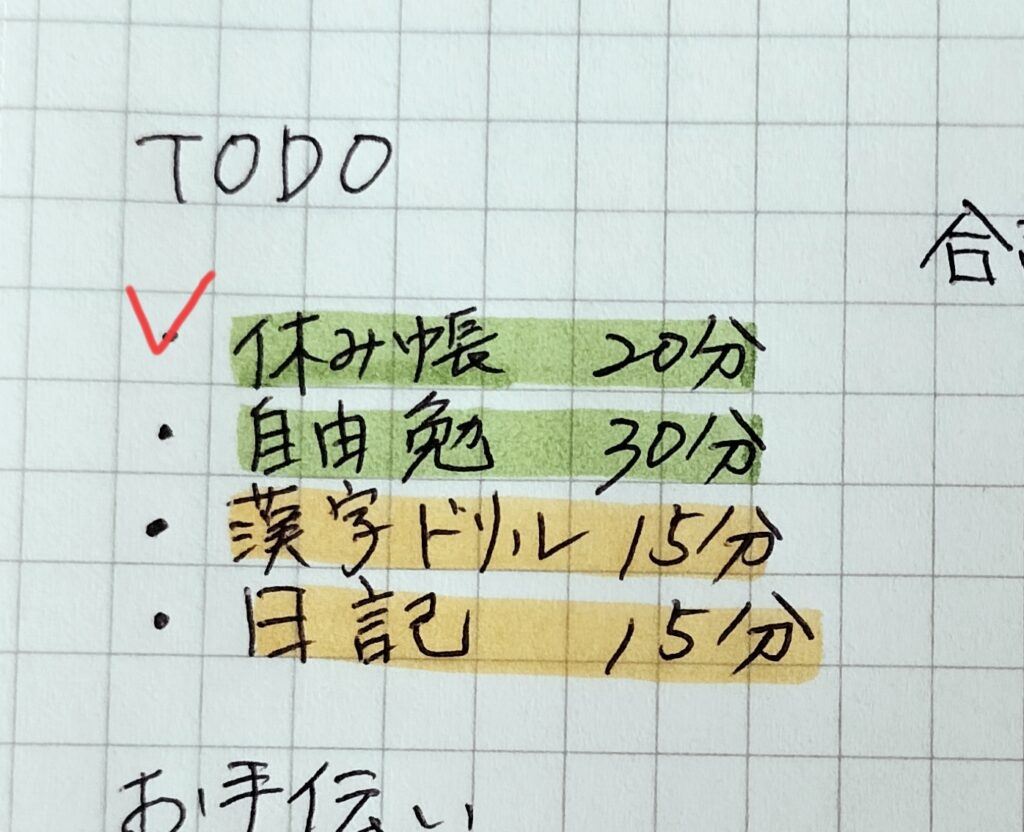 TODO
合
・休み帳 20分
・自由勉 30分
・漢字ドリル 15分
・日記 15分
お手伝い